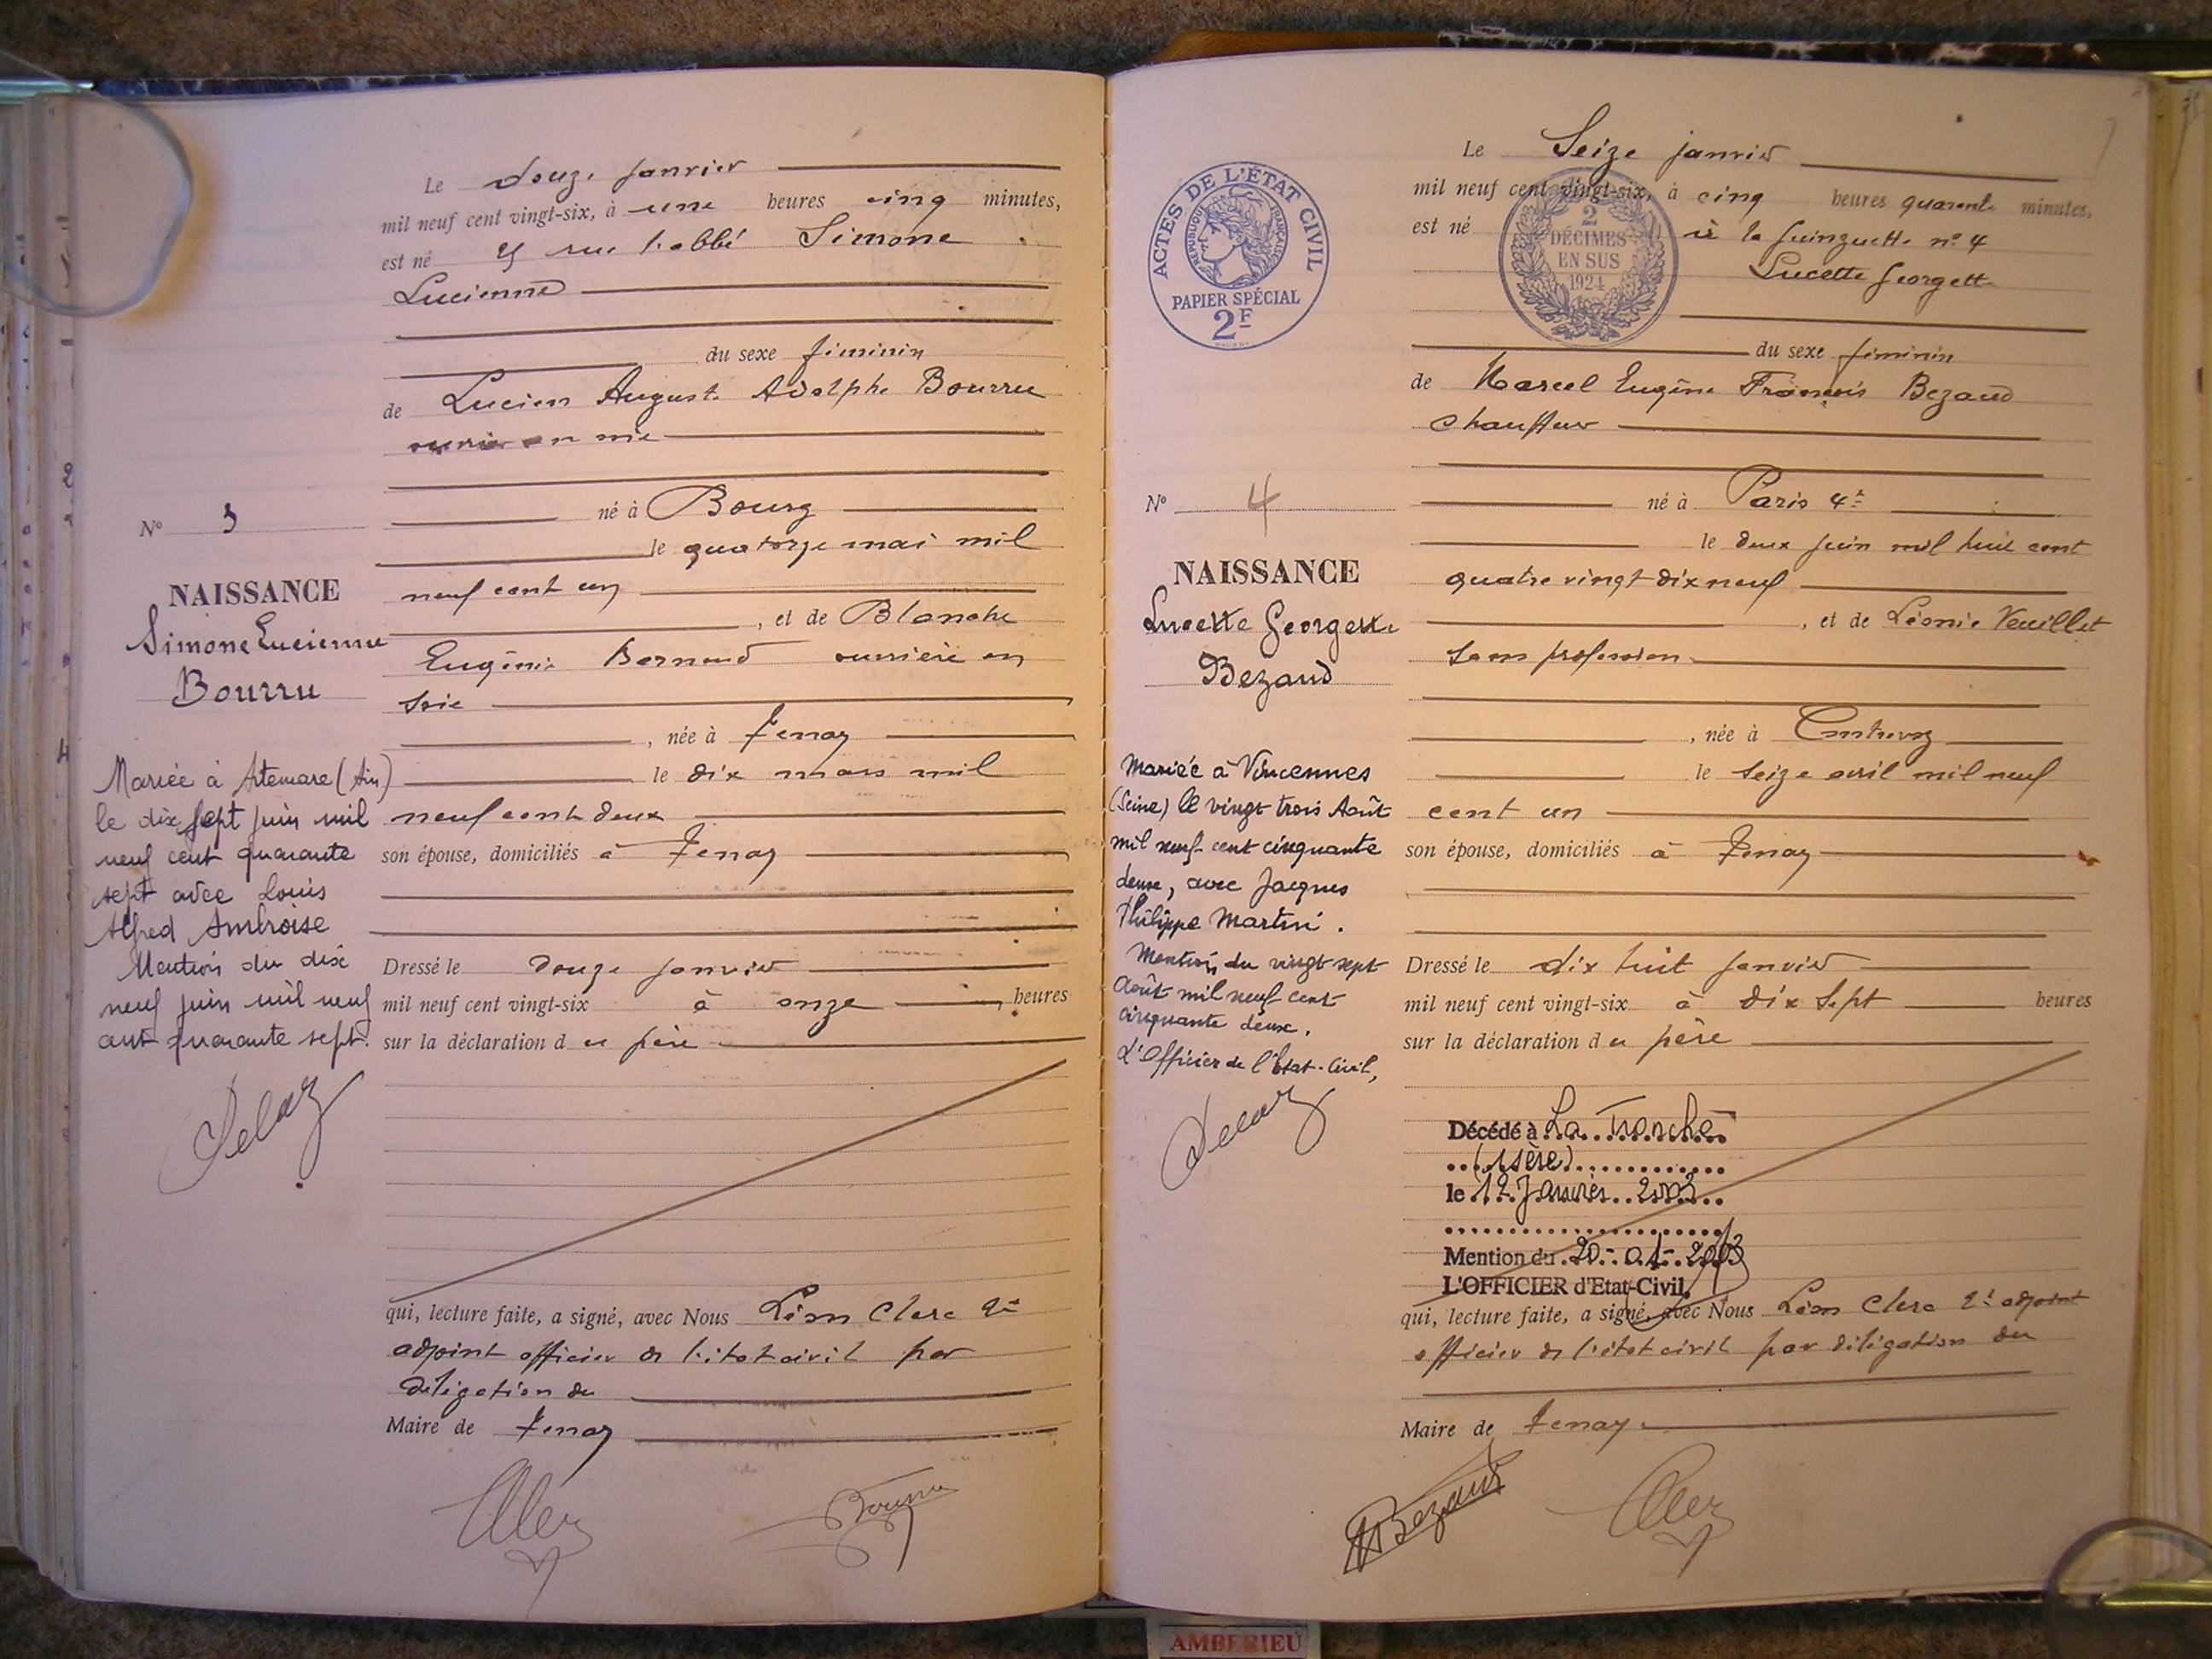 Le douze janvier
mil neuf cent vingt-six, à une heures cinq minutes,
est né rue l'abbé Simone
Lucienne
du sexe féminin
de Lucien Auguste Adolphe Bourru
ouvrier en
né à Bourg
le quatorze mai mil
neuf cent un
, et de Blanche
Eugénie Bernard ouvrière en
soie
, née à Tenay
le dix mars mil
neuf cent deux
son épouse, domiciliés à Tenay
Dressé le douze janvier
mil neuf cent vingt-six à onze heures
sur la déclaration du père
qui, lecture faite, a signé, avec Nous Léon Clerc 2e
adjoint officier de l'état civil par
délégation du
Maire de Tenay
Bourru
N° 3
NAISSANCE
Simone Lucienne
Bourru
Mariée à Artemare (Ain)
le dix sept juin mil
neuf cent quarante
sept avec Louis
Alfred Ambroise
Mention du dix
neuf juin mil neuf
cent quarante sept.
ACTES DE L'ÉTAT CIVIL
RÉPUBLIQUE FRANÇAISE
PAPIER SPÉCIAL
2F
2
DÉCIMES
EN SUS
1924
Le Seize janvier
mil neuf cent vingt-six, à cinq heures quarante minutes,
est né à la guinguette n° 4
Lucette Georgette
du sexe féminin
de Marcel Eugène François Bezaud
chauffeur
né à Paris 4e
le deux juin mil huit cent
quatre vingt dix neuf
, et de Léonie Veuillet
sans profession
, née à Contrevoz
le seize avril mil neuf
cent un
son épouse, domiciliés à Tenay
Dressé le dix huit janvier
mil neuf cent vingt-six à dix sept heures
sur la déclaration du père
Décédé à La Tronche
(Isère)
le 12 Janvier 2003
Mention du 20-01-2003
L'OFFICIER d'Etat-Civil,
qui, lecture faite, a signé, avec Nous Léon Clerc 2e adjoint
officier de l'état civil par délégation du
Maire de Tenay
Bezaud
N° 4
NAISSANCE
Lucette Georgette
Bezaud
Mariée à Vincennes
(Seine) le vingt trois Août
mil neuf cent cinquante
deux, avec Jacques
Philippe Martini.
Mention du vingt sept
Août mil neuf cent
cinquante deux.
L'Officier de l'Etat-Civil,
AMBERIEU